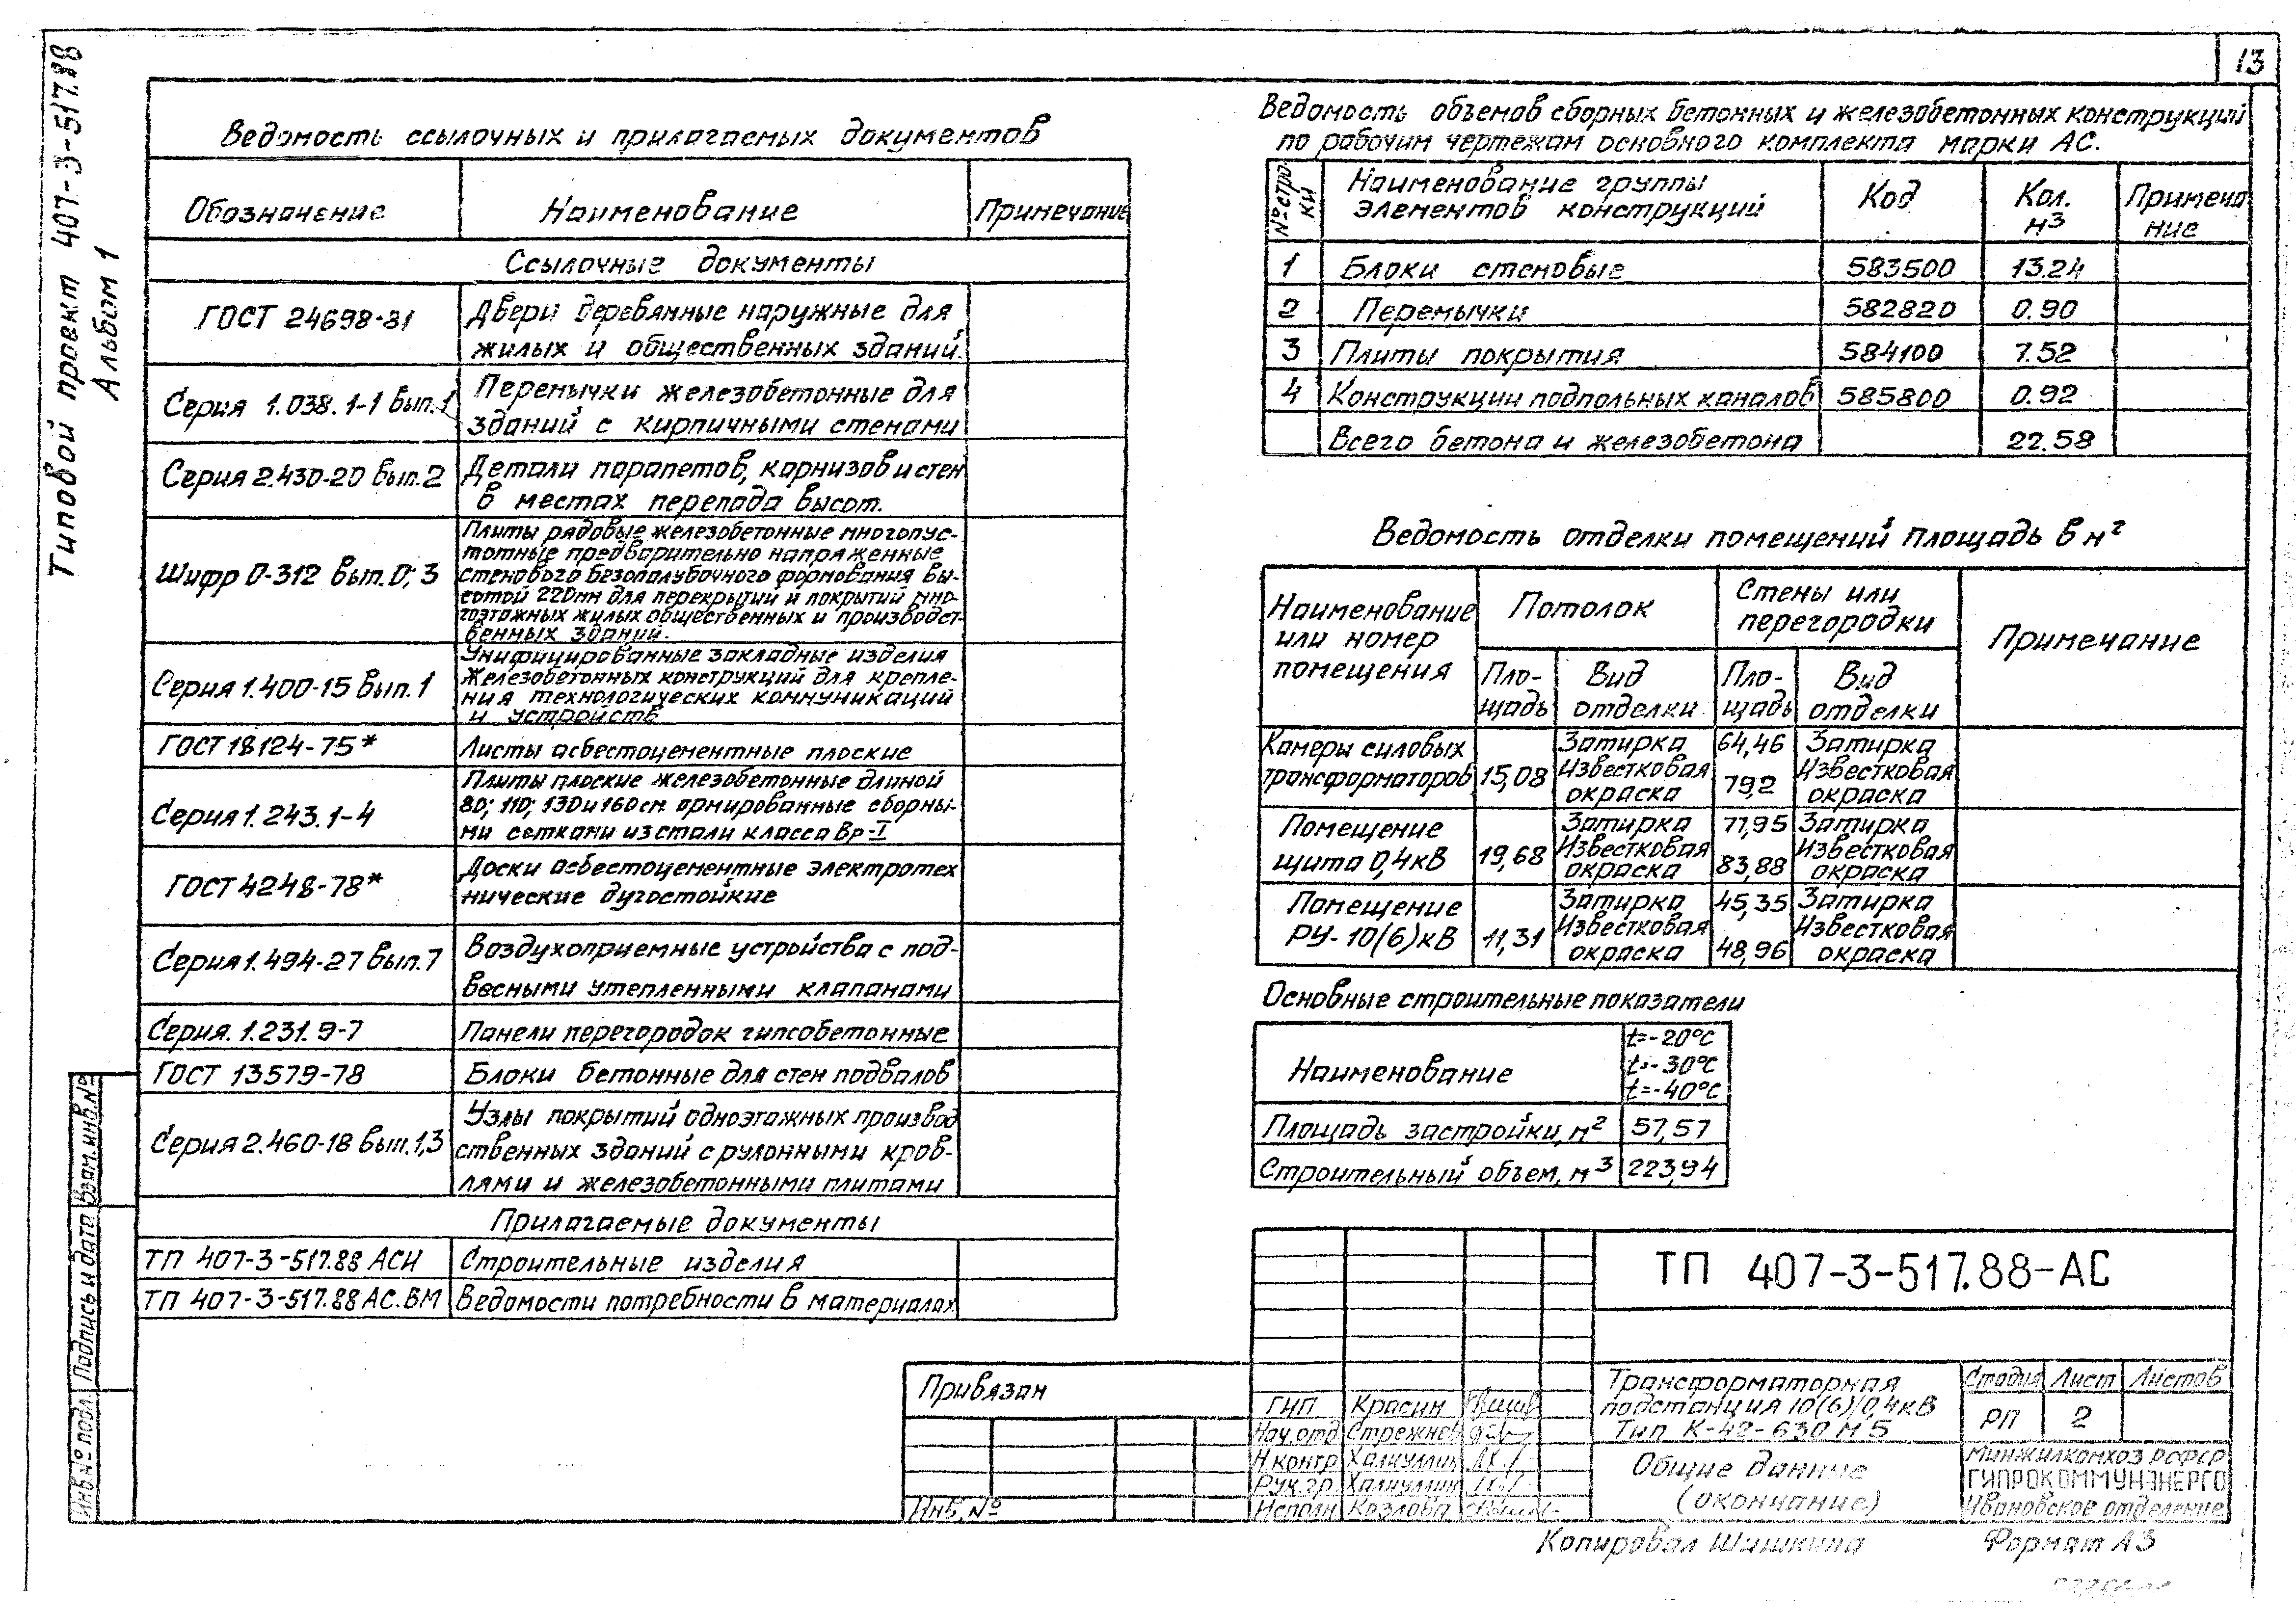 13
Типовой проект 407-3-517.88
Альбом 1
Ведомость ссылочных и прилагаемых документов
Обозначение
Наименование
Примечание
Ссылочные документы
ГОСТ 24698-81
Двери деревянные наружные для
жилых и общественных зданий.
Серия 1.038.1-1 вып.1
Перемычки железобетонные для
зданий с кирпичными стенами
Серия 2.430-20 вып.2
Детали парапетов, карнизов и стен
в местах перепада высот.
Шифр 0-312 вып.0; 3
Плиты рядовые железобетонные многопус-
тотные предварительно напряженные
стенового безопалубочного формования вы-
сотой 220мм для перекрытий и покрытий мно-
гоэтажных жилых общественных и производст-
венных зданий.
Серия 1.400-15 вып.1
Унифицированные закладные изделия
железобетонных конструкций для крепле-
ния технологических коммуникаций
и устройств
ГОСТ 18124-75*
Листы асбестоцементные плоские
Серия 1.243.1-4
Плиты плоские железобетонные длиной
80; 110; 130 и 160 см армированные сборны-
ми сетками из стали класса Вр-I
ГОСТ 4248-78*
Доски асбестоцементные электротех
нические дугостойкие
Серия 1.494-27 вып.7
Воздухоприемные устройства с под-
весными утепленными клапанами
Серия. 1.231.9-7
Панели перегородок гипсобетонные
ГОСТ 13579-78
Блоки бетонные для стен подвалов
Серия 2.460-18 вып.1,3
Узлы покрытий одноэтажных производ
ственных зданий с рулонными кров-
лями и железобетонными плитами
Прилагаемые документы
ТП 407-3-517.88 АСИ
Строительные изделия
ТП 407-3-517.88 АС.ВМ
Ведомости потребности в материалах
Ведомость объемов сборных бетонных и железобетонных конструкций
по рабочим чертежам основного комплекта марки АС.
№ стро
ки
Наименование группы
элементов конструкций
Код
Кол.
м³
Примеча
ние
1 Блоки стеновые 583500 13.24
2 Перемычки 582820 0.90
3 Плиты покрытия 584100 7.52
4 Конструкции подпольных каналов 585800 0.92
Всего бетона и железобетона 22.58
Ведомость отделки помещений площадь в м²
Наименование
или номер
помещения
Потолок
Стены или
перегородки
Примечание
Пло-
щадь
Вид
отделки
Пло-
щадь
Вид
отделки
Камеры силовых
трансформаторов
15,08
Затирка
Известковая
окраска
64,46
79,2
Затирка
Известковая
окраска
Помещение
щита 0,4кВ
19,68
Затирка
Известковая
окраска
77,95
83,88
Затирка
Известковая
окраска
Помещение
РУ-10(6)кВ
11,31
Затирка
Известковая
окраска
45,35
48,96
Затирка
Известковая
окраска
Основные строительные показатели
Наименование
t=-20°C
t=-30°C
t=-40°C
Площадь застройки, м² 57,57
Строительный объем, м³ 223,94
ТП 407-3-517.88-АС
Привязан
Инв.№
ГИП Красин
Нач.отд Стрежнев
Н.контр. Халиуллин
Рук.гр. Халиуллин
Исполн Козлова
Трансформаторная
подстанция 10(6)/0,4кВ
Тип К-42-630 М5
Общие данные
(окончание)
Стадия Лист Листов
РП 2
Минжилкомхоз РСФСР
ГИПРОКОММУНЭНЕРГО
Ивановское отделение
Копировал Шишкина
Формат А3
Взам.инв.№
Подпись и дата
Инв.№ подл.